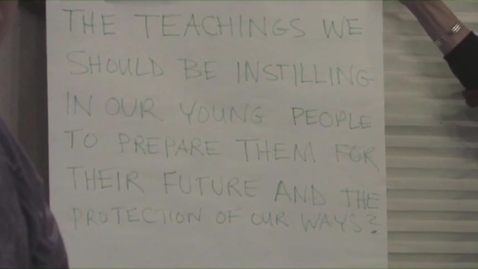 THE TEACHINGS WE
SHOULD BE INSTILLING
IN OUR YOUNG PEOPLE
TO PREPARE THEM FOR
THEIR FUTURE AND THE
PROTECTION OF OUR WAYS?